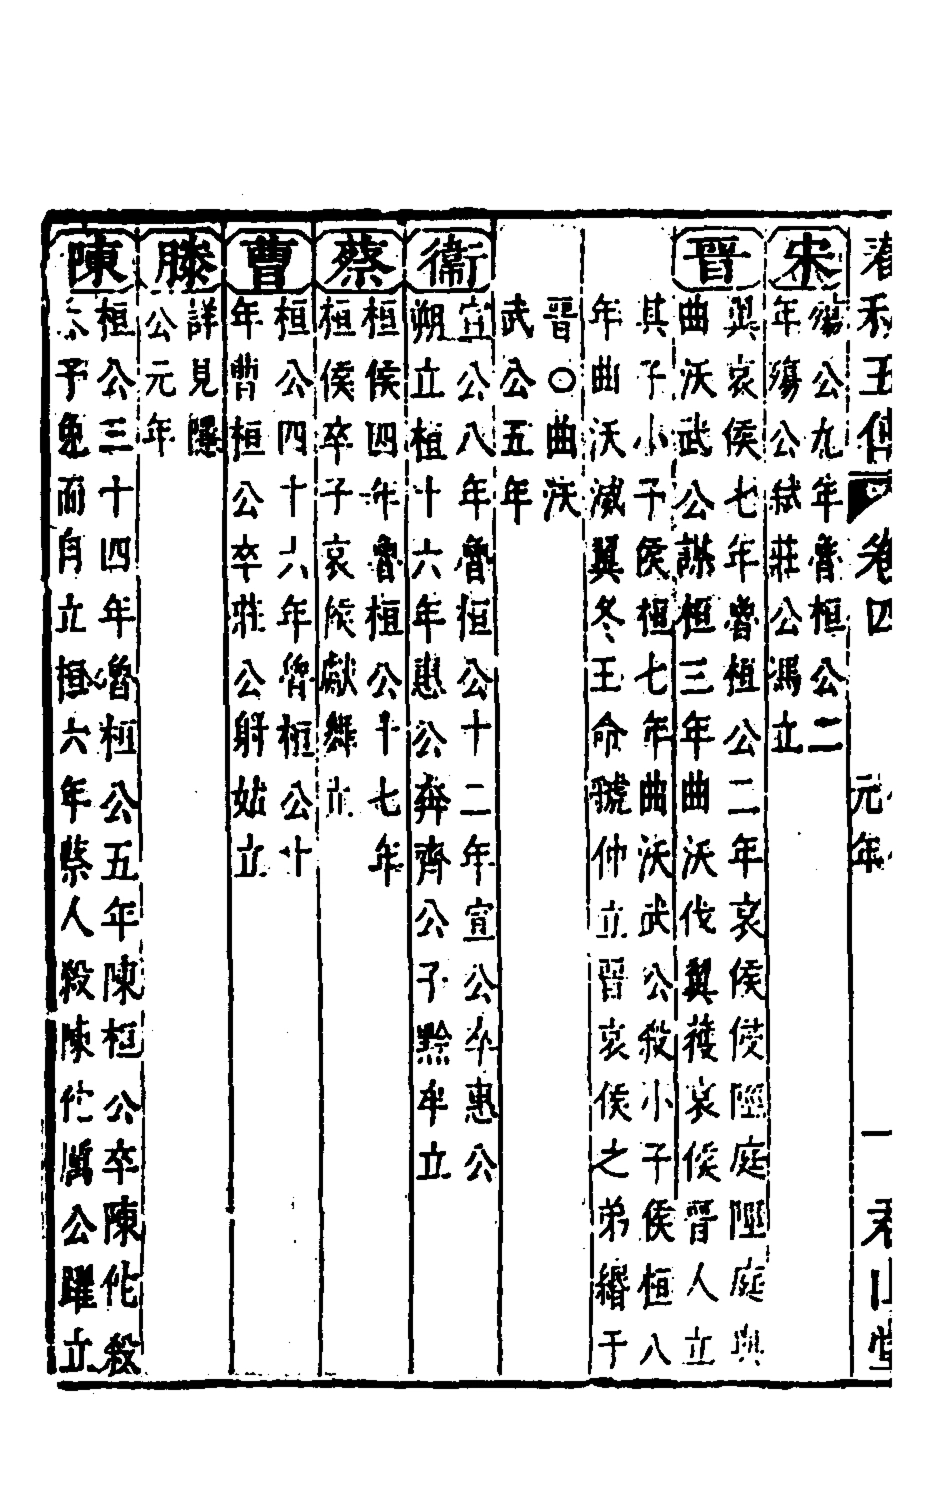 卷四
元年
一
宋
殤公九年魯桓公二
年殤公弒莊公馮立
晉
哀侯七年魯桓公二年哀侯侵陘庭陘庭與
曲沃武公謀桓三年曲沃伐翼獲哀侯晉人立
其子小子侯桓七年曲沃武公殺小子侯桓八
年曲沃滅翼冬王命虢仲立晉哀侯之弟緡于
晉○曲沃
武公五年
衛
宣公八年魯桓公十二年宣公卒惠公
朔立桓十六年惠公奔齊公子黔牟立
蔡
桓侯四年魯桓公十七年
桓侯卒子哀侯獻舞立
曹
桓公四十六年魯桓公十
年曹桓公卒莊公射姑立
滕
詳見隱
公元年
陳
桓公三十四年魯桓公五年陳桓公卒陳佗殺
太子免而自立桓六年蔡人殺陳佗厲公躍立